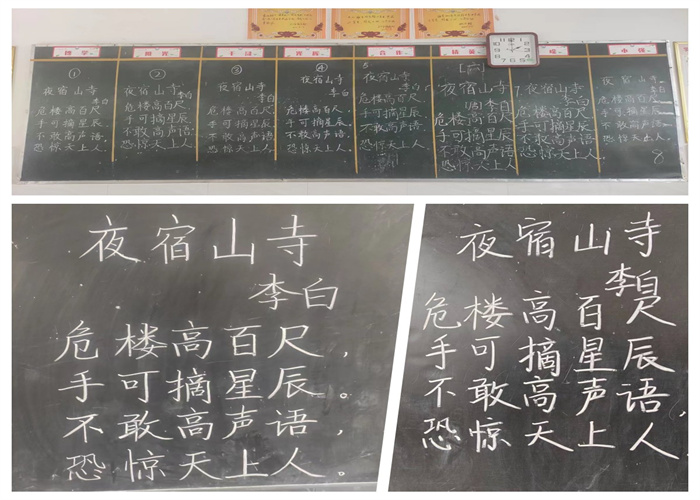 ①
夜宿山寺
李白
危楼高百尺,
手可摘星辰。
不敢高声语,
恐惊天上人。
②
夜宿山寺
李白
危楼高百尺,
手可摘星辰。
不敢高声语,
恐惊天上人。
③
夜宿山寺
李白
危楼高百尺,
手可摘星辰。
不敢高声语,
恐惊天上人。
④
夜宿山寺
李白
危楼高百尺,
手可摘星辰。
不敢高声语,
恐惊天上人。
5
夜宿山寺
李白
危楼高百尺,
手可摘星辰。
不敢高声语,
恐惊天上人。
夜宿山寺
李白
危楼高百尺
手可摘星辰
不敢高声语
恐惊天上人
7
夜宿山寺
李白
危楼高百尺
手可摘星辰
不敢高声语
恐惊天上人
夜宿山寺
李白
危楼高百尺,
手可摘星辰。
不敢高声语,
恐惊天上人。
8
夜宿山寺
李白
危楼高百尺,
手可摘星辰。
不敢高声语,
恐惊天上人。
夜宿山寺
李白
危楼高百尺
手可摘星辰
不敢高声语,
恐惊天上人